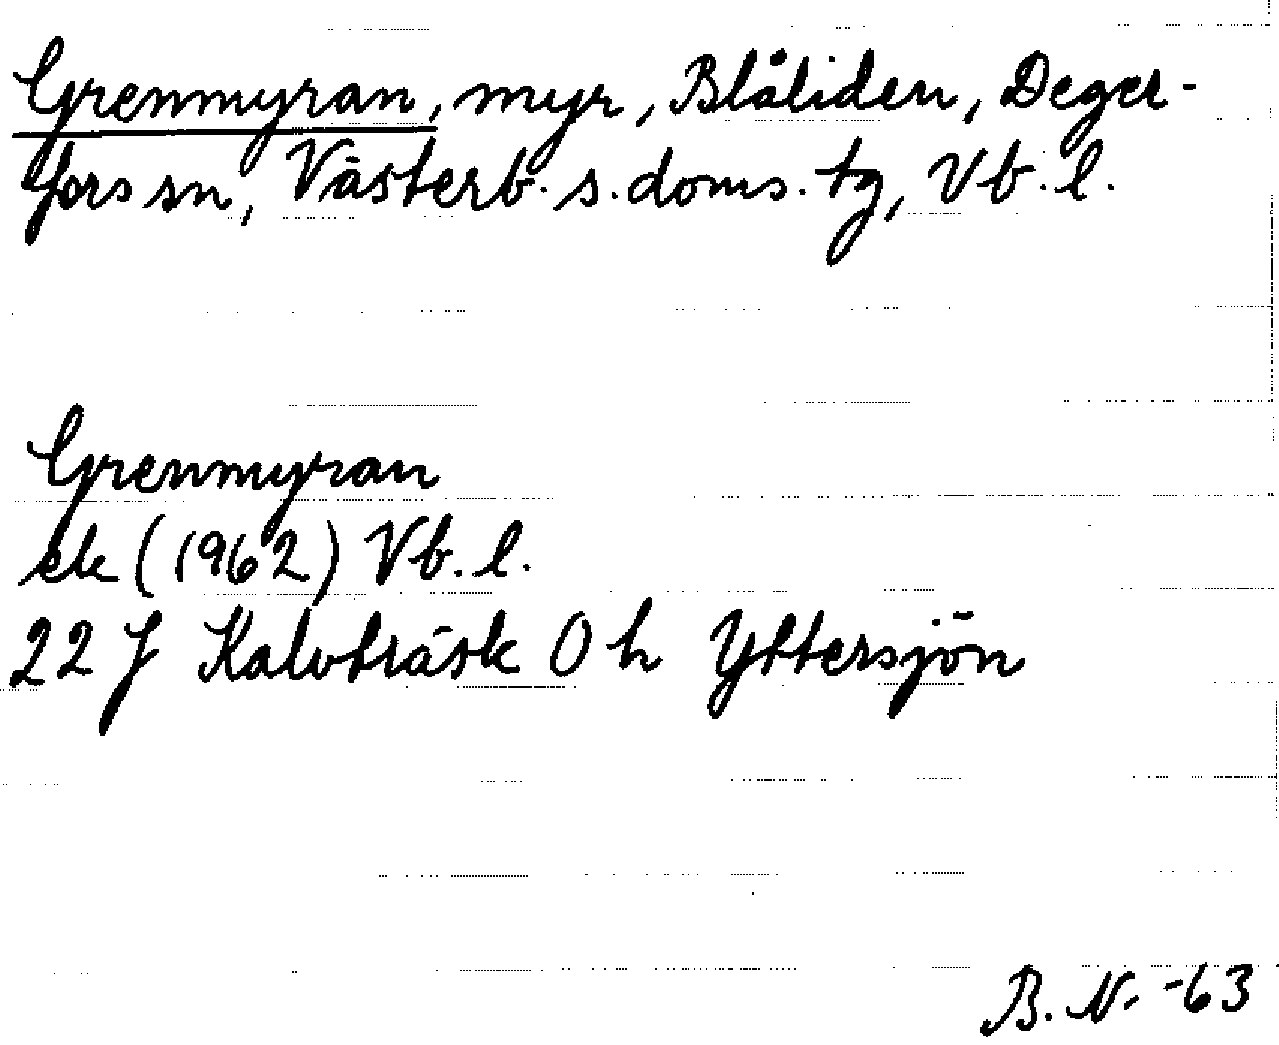 Grenmyran, myr, Blåliden, Deger-
fors sn, Västerb. s. doms. tg, Vb. l.
Grenmyran
ek (1962) Vb. l.
22 J Kalvträsk 0 h Yttersjön
B. N. -63